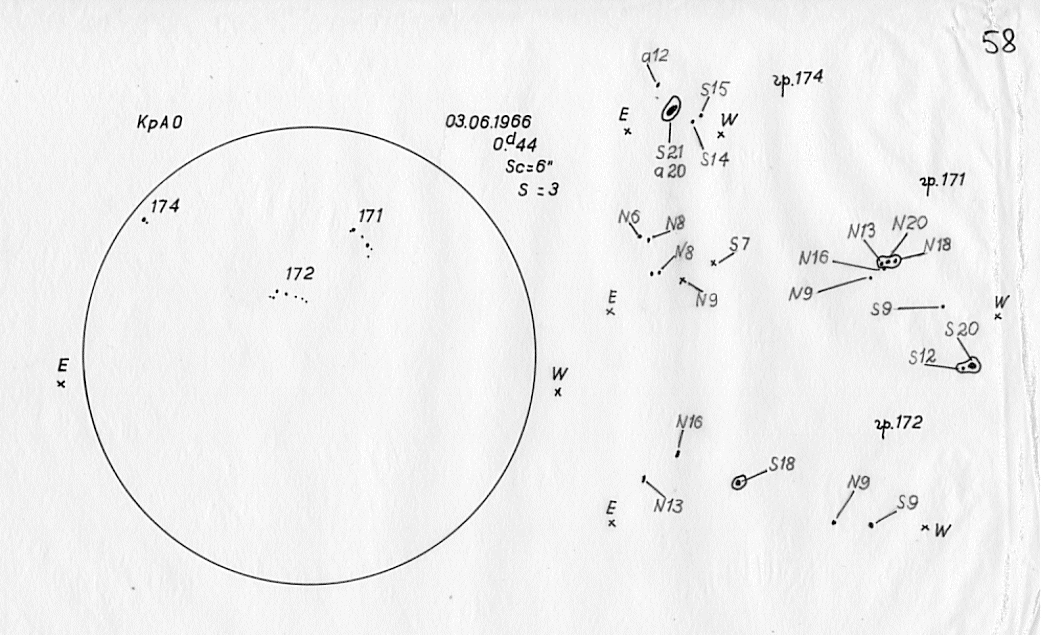 58
КрАО
03.06.1966
0.d44
Sc=6"
S = 3
174
171
172
E
W
гр.174
a12
S15
E
W
S21
a20
S14
гр.171
N6
N8
N8
S7
N9
E
N13
N20
N18
N16
N9
S9
W
S20
S12
гр.172
N16
S18
N13
E
N9
S9
W